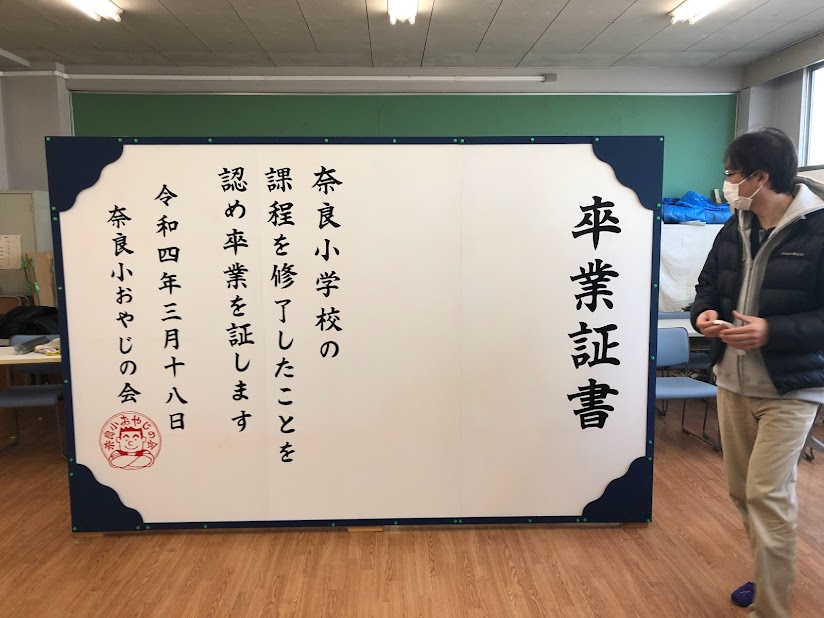 卒業証書
奈良小学校の
課程を修了したことを
認め卒業を証します
令和四年三月十八日
奈良小おやじの会
奈良小おやじの会